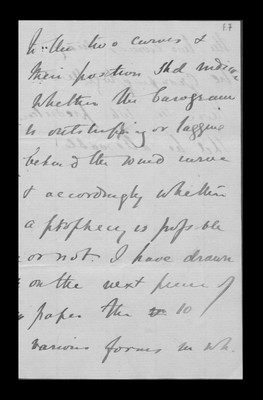 87
the two curves &
their position shd indicate
whether the barogram
is outstripping or lagging
behind the wind curve
& accordingly whether
a prophecy is possible
or not. I have drawn
on the next piece of
paper the 10
various forms in wh.